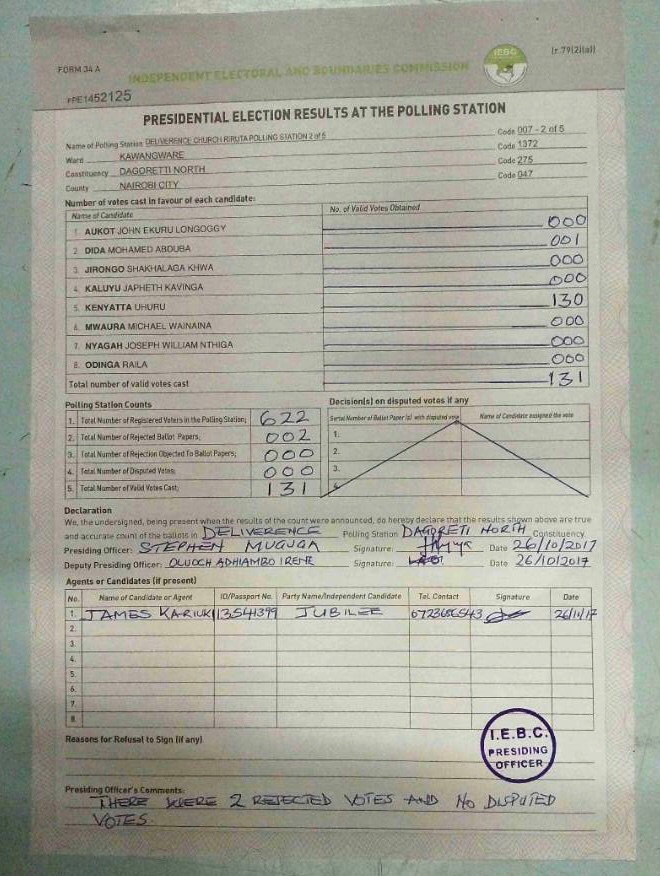 FORM 34 A
INDEPENDENT ELECTORAL AND BOUNDARIES COMMISSION
IEBC
(r.79(2)(a))
PRE1452125
PRESIDENTIAL ELECTION RESULTS AT THE POLLING STATION
Name of Polling Station DELIVERENCE CHURCH RIRUTA POLLING STATION 2 of 5 Code 007 - 2 of 5
Ward KAWANGWARE Code 1372
Constituency DAGORETTI NORTH Code 275
County NAIROBI CITY Code 047
Number of votes cast in favour of each candidate:
Name of Candidate No. of Valid Votes Obtained
1. AUKOT JOHN EKURU LONGOGGY 000
2. DIDA MOHAMED ABDUBA 001
3. JIRONGO SHAKHALAGA KHWA 000
4. KALUYU JAPHETH KAVINGA 000
5. KENYATTA UHURU 130
6. MWAURA MICHAEL WAINAINA 000
7. NYAGAH JOSEPH WILLIAM NTHIGA 000
8. ODINGA RAILA 000
Total number of valid votes cast 131
Polling Station Counts
1. Total Number of Registered Voters in the Polling Station; 622
2. Total Number of Rejected Ballot Papers; 002
3. Total Number of Rejection Objected To Ballot Papers; 000
4. Total Number of Disputed Votes; 000
5. Total Number of Valid Votes Cast; 131
Decision(s) on disputed votes if any
Serial Number of Ballot Paper(s) with disputed vote Name of Candidate assigned the vote
1.
2.
3.
4.
Declaration
We, the undersigned, being present when the results of the count were announced, do hereby declare that the results shown above are true
and accurate count of the ballots in DELIVERENCE Polling Station DAGORETI NORTH Constituency.
Presiding Officer: STEPHEN MUGUGA Signature: Date 26/10/2017
Deputy Presiding Officer: OLUOCH ADHIAMBO IRENE Signature: Date 26/10/2017
Agents or Candidates (if present)
No. Name of Candidate or Agent ID/Passport No. Party Name/Independent Candidate Tel. Contact Signature Date
1. JAMES KARIUKI 13541399 JUBILEE 0723656543 26/11/17
2.
3.
4.
5.
6.
7.
8.
Reasons for Refusal to Sign (if any)
I.E.B.C.
PRESIDING
OFFICER
Presiding Officer's Comments:
THERE WERE 2 REJECTED VOTES AND NO DISPUTED
VOTES.